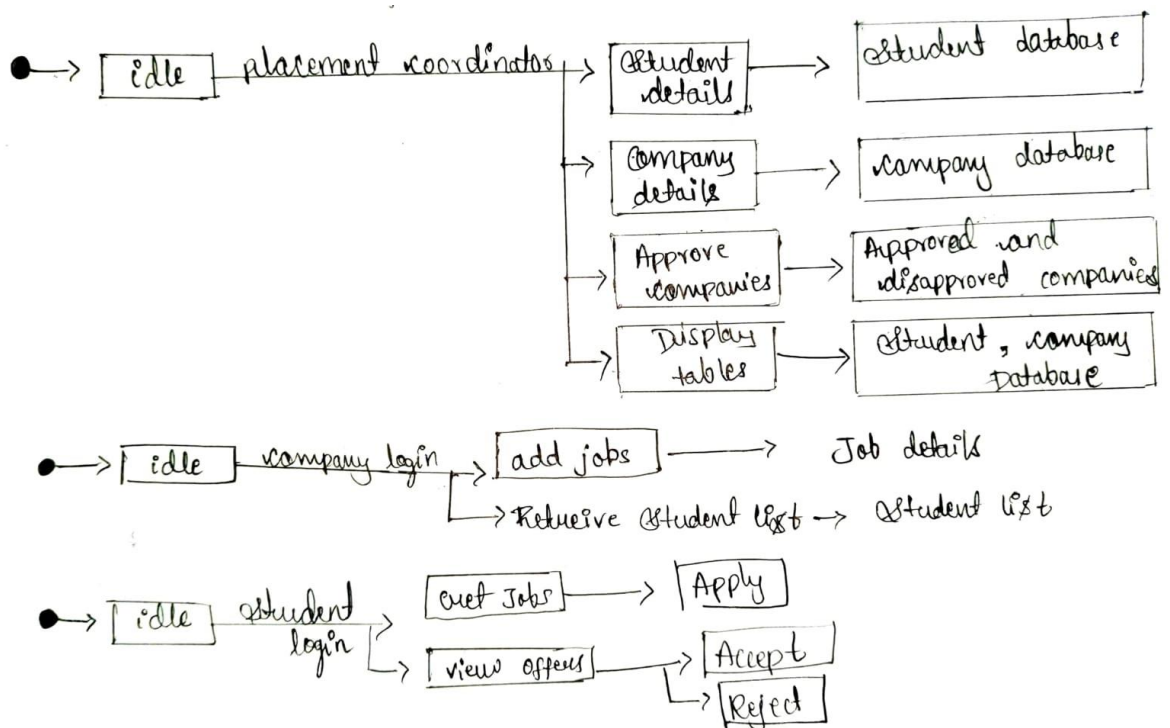 idle placement coordinator Student details Student database
Company details Company database
Approve companies Approved and disapproved companies
Display tables Student, company Database
idle company login add jobs Job details
Retreive Student list Student list
idle student login Jobs Apply
view offers Accept
Reject